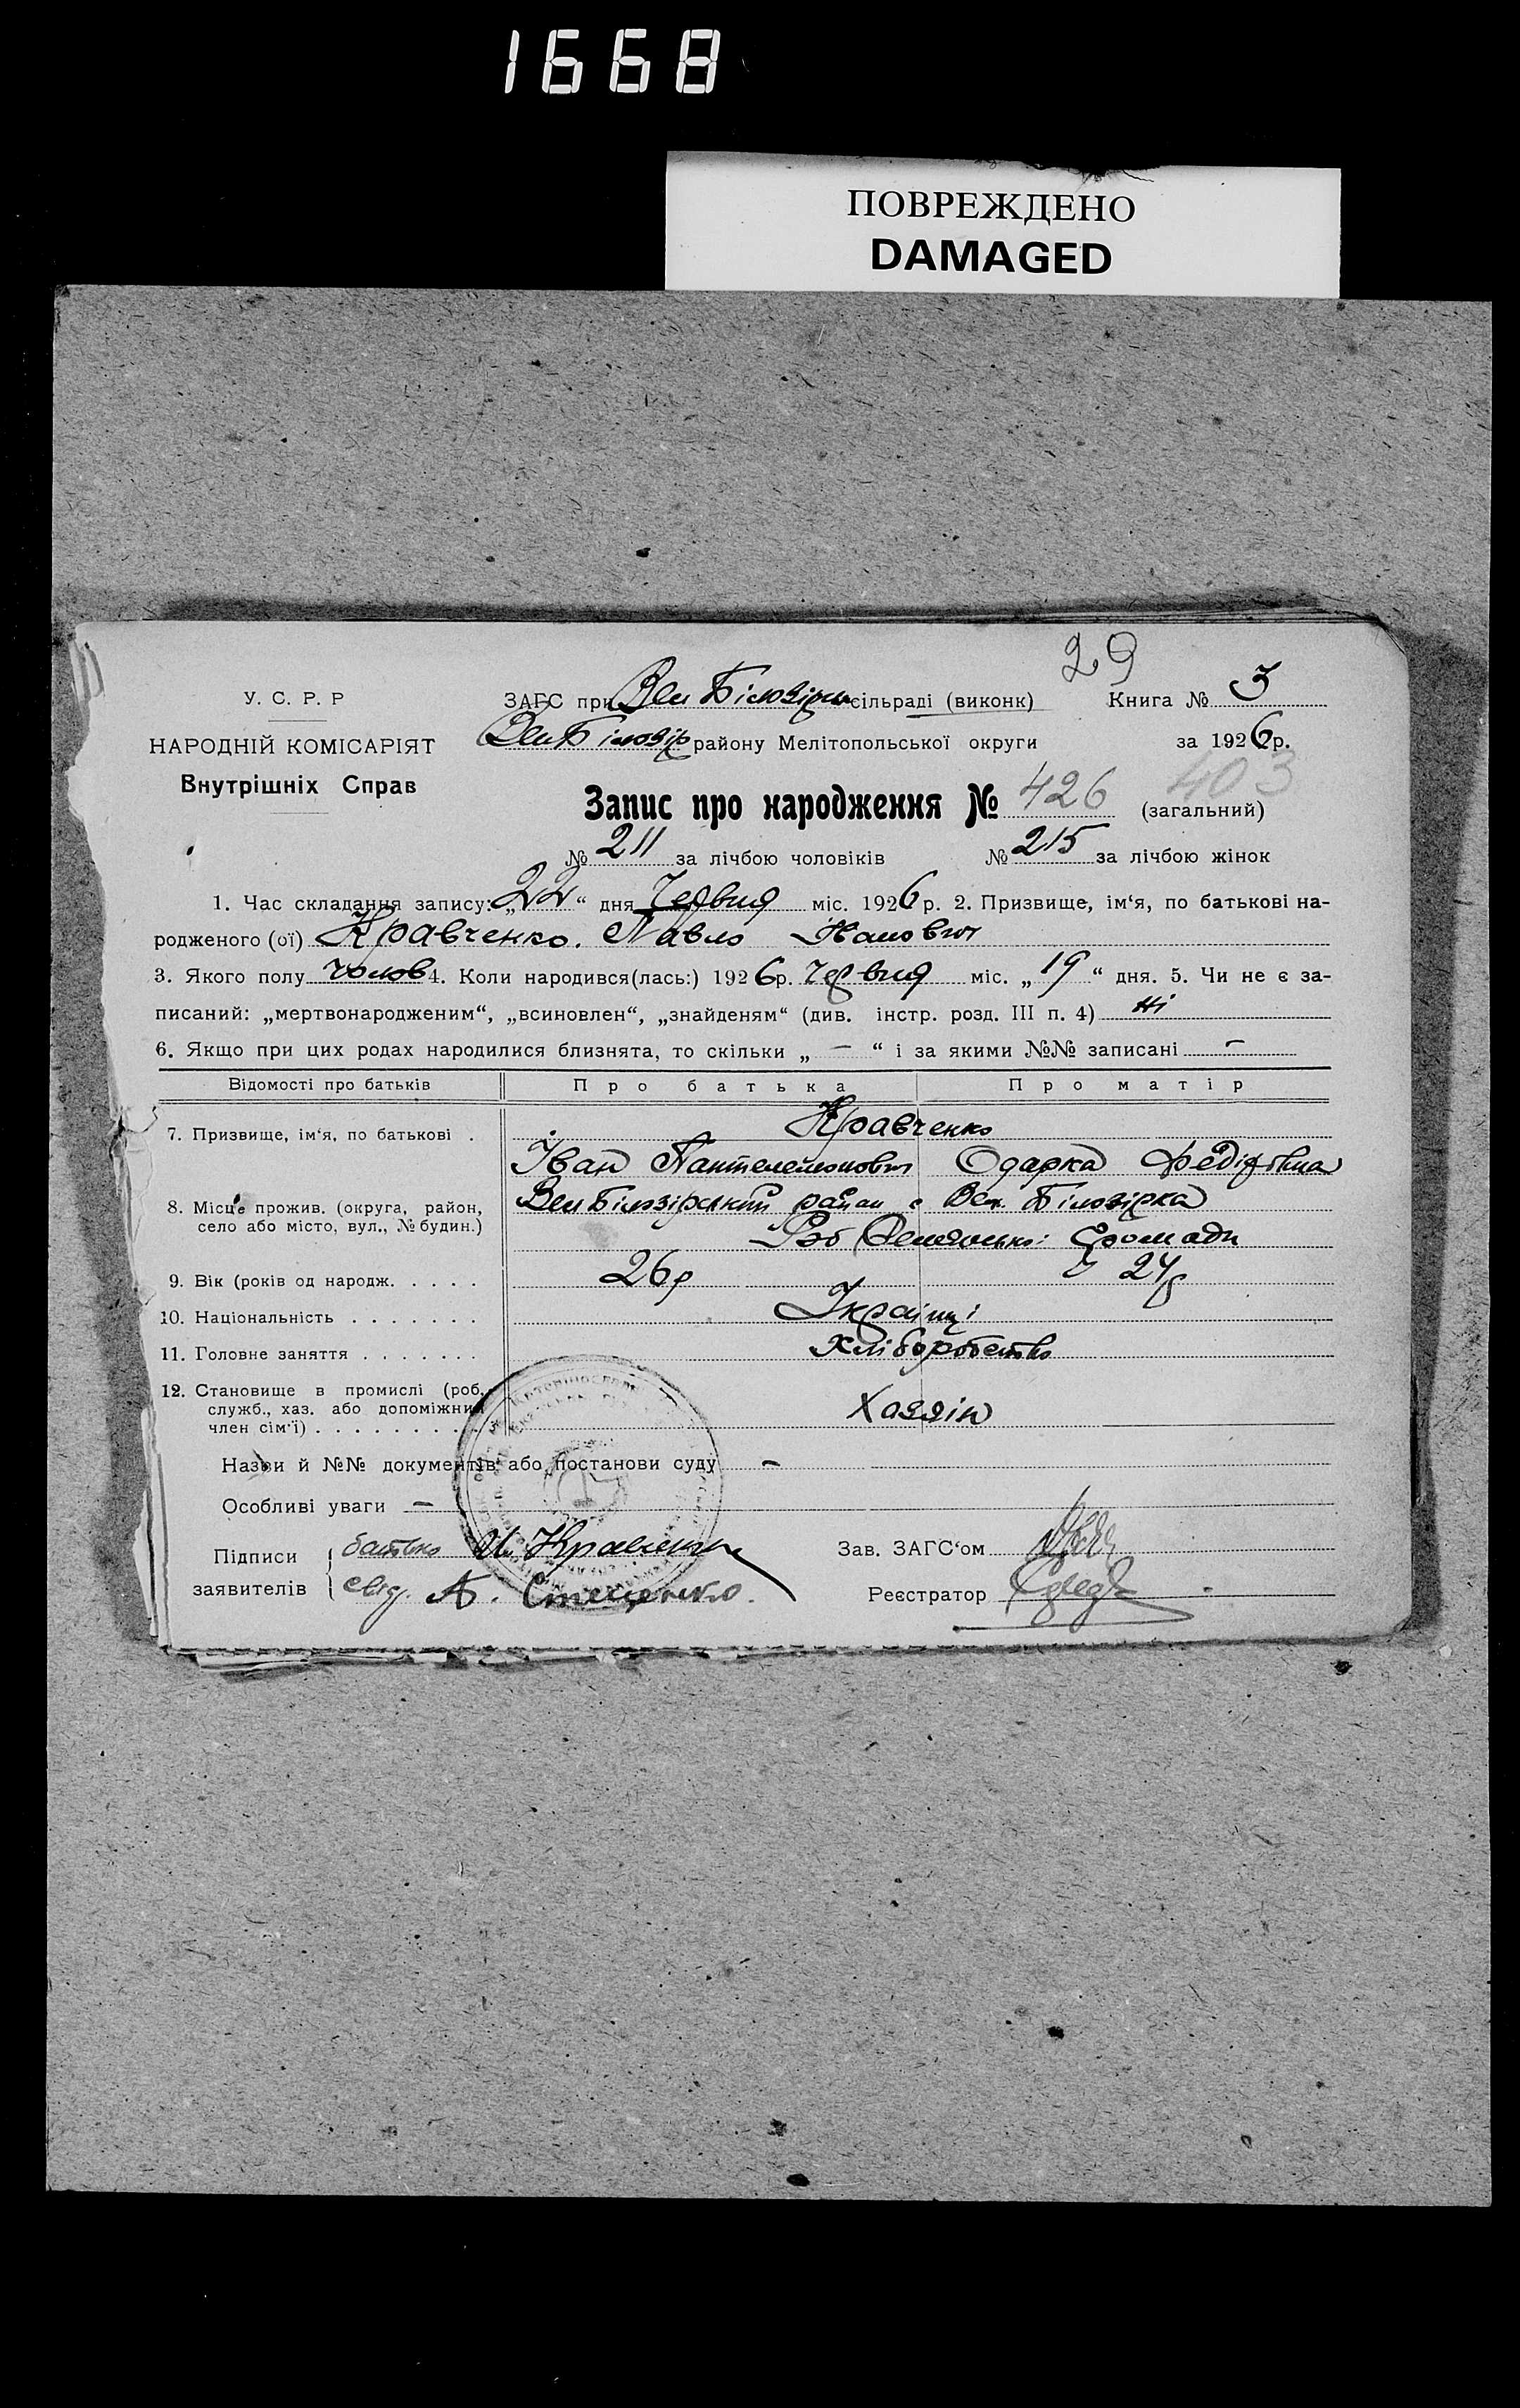 1668
ПОВРЕЖДЕНО
DAMAGED
29
У. С. Р. Р
НАРОДНІЙ КОМІСАРІЯТ
Внутрішніх Справ
ЗАГС при Вел Білозірськ сільраді (виконк) Книга № 3
Вел Білозір району Мелітопольської округи за 1926 р.
403
Запис про народження № 426 (загальний)
№ 211 за лічбою чоловіків № 215 за лічбою жінок
1. Час складання запису: „22“ дня Червня міс. 1926 р. 2. Призвище, ім‘я, по батькові на-
родженого (ої) Кравченко. Павло Іванович
3. Якого полу чолов 4. Коли народився(лась:) 1926 р. Червня міс. „19“ дня. 5. Чи не є за-
писаний: „мертвонародженим“, „всиновлен“, „знайденям“ (див. інстр. розд. III п. 4) ні
6. Якщо при цих родах народилися близнята, то скільки „ — “ і за якими №№ записані —
Відомості про батьків Про батька Про матір
7. Призвище, ім‘я, по батькові . Кравченко
Іван Пантелемонович Одарка Федірівна
8. Місце прожив. (округа, район,
село або місто, вул., № будин.)
Вел Білозірський район с Вел. Білозірка
Громади
9. Вік (років од народж. . . . . 26р 24р
10. Національність . . . . . . . Українці
11. Головне заняття . . . . . . . Хліборобство
12. Становище в промислі (роб.,
служб., хаз. або допоміжний
член сім‘ї) . . . . . . . . . Хазяін
Назви й №№ документів або постанови суду —
Особливі уваги —
Підписи
заявителів
батько И. Кравченко
свід. А. Стеценко.
Зав. ЗАГС‘ом
Реєстратор